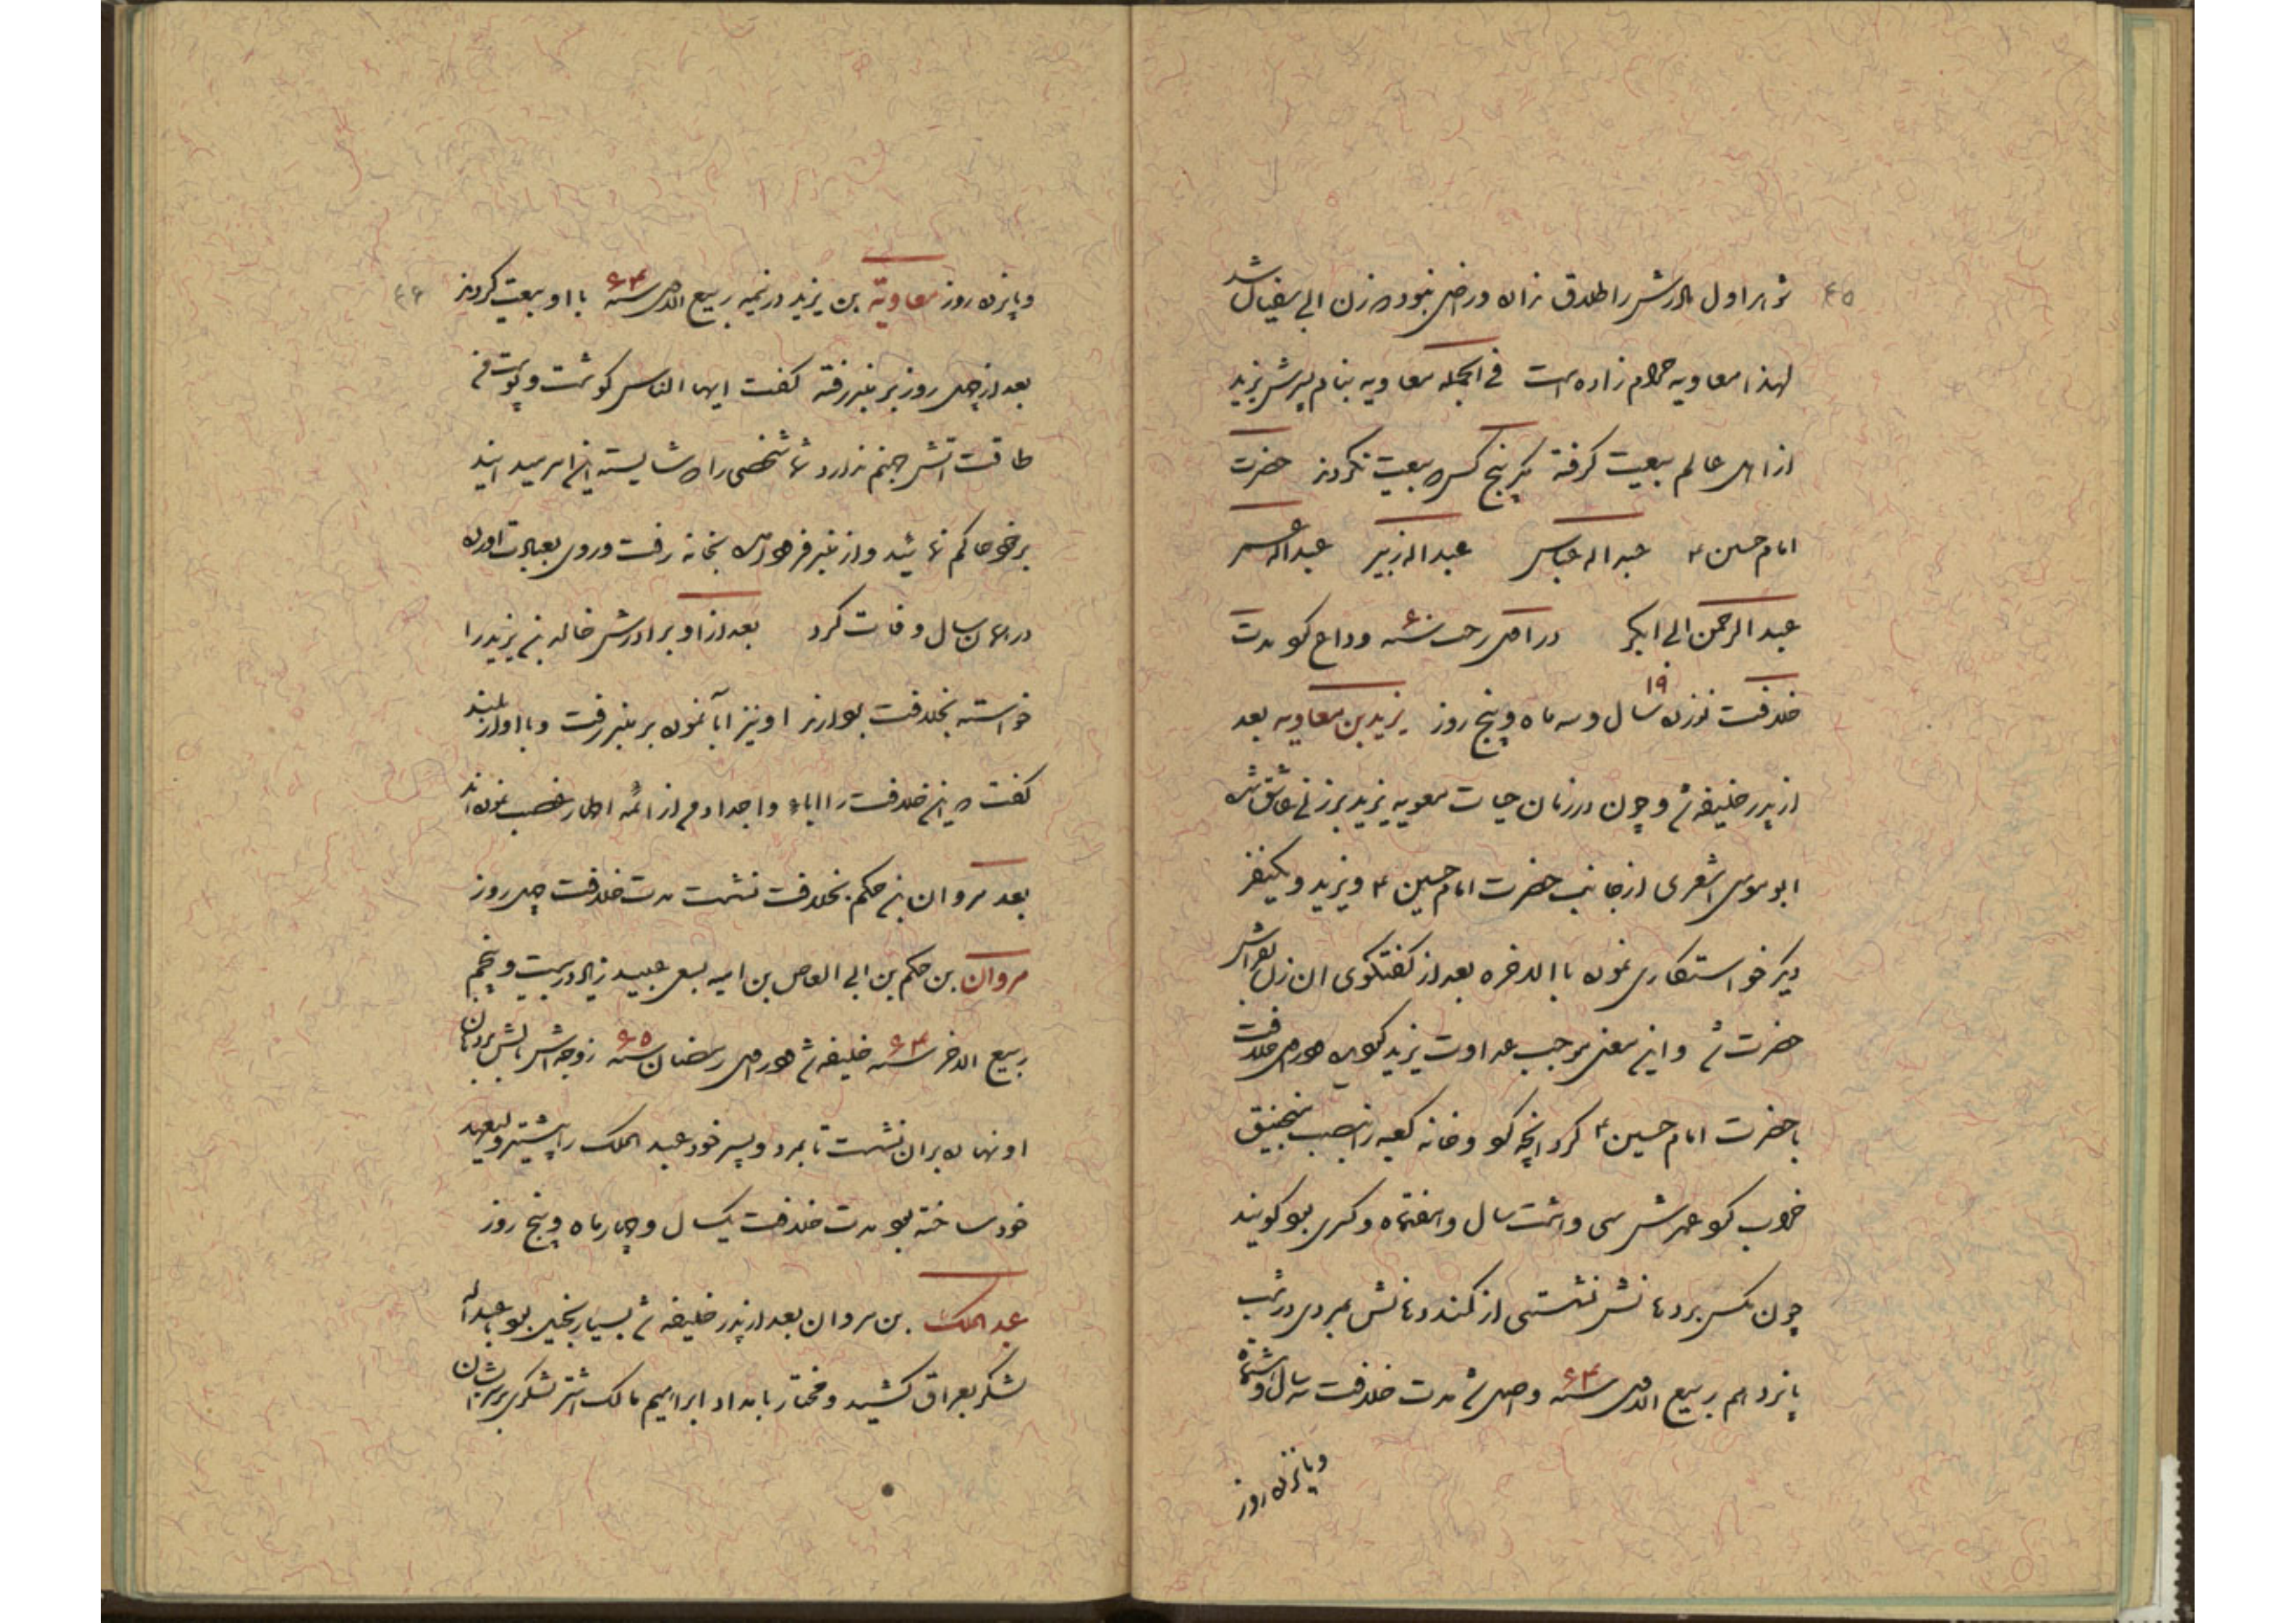 ۴۵
شوهر اول مادرش را طلاق نداده و راضی نبوده زن ابی سفیان شد
لهذا معاویه حرام زاده است فی الجمله معاویه بنام پسرش یزید
از اهل عالم بیعت گرفته مگر پنج کس که بیعت نکردند حضرت
امام حسین ۴ عبداله عباس عبداله زبیر عبداله عمر
عبدالرحمن ابی ابکر در اهل رجب سنه ۶۰ وداع کرد مدت
خلافت نوزده ۱۹ سال و سه ماه و پنج روز یزید بن معاویه بعد
از پدر خلیفه شد و چون در زمان حیات معویه یزید بر زنی عاشق شده
ابو موسی اشعری از جانب حضرت امام حسین ۴ و یزید و یکنفر
دیگر خواستکاری نموده باالاخره بعد از کفتکوی ان زن بفراش
حضرت شد و این معنی موجب عداوت یزید کردیده در اهل خلافت
با حضرت امام حسین ۴ کرد آنچه کرد و خانه کعبه را نصب منجنیق
خراب کرد عمرش سی و اشت سال و هفتماه و کسری بود کویند
چون مکس بر دهانش نشستی از کند دهانش بمردی در شب
پانزدهم ربیع الاول سنه ۶۴ واصل شد مدت خلافت سه سال و اشتماه
و پانزده روز
۴۶
و پانزده روز معاویه بن یزید در نیمه ربیع الاول سنه ۶۴ با او بیعت کردند
بعد از چهل روز بر منبر رفته کفت ایها الناس کوشت و پوست من
طاقت اتش جهنم ندارد شما شخصی را که شایسته این امر میدانید
بر خود حاکم نمائید و از منبر فرود امده بخانه رفت و روی بعبادت آورده
در همان سال وفات کرد بعد از او برادرش خالد بن یزید را
خواسته بخلافت بردارند او نیز ابا نموده بر منبر رفت و با اواز بلند
کفت که این خلافت را اباء و اجدادم از ائمه اطهار غصب نموده اند
بعد مروان بن حکم بخلافت نشست مدت خلافت چهل روز
مروان بن حکم بن ابی العاص بن امیه بسعی عبید زیاد در بیست و پنجم
ربیع الاخر سنه ۶۴ خلیفه شد در اهل رمضان سنه ۶۵ زوجه اش بالش بر دهان
او نهاده بران نشست تا بمرد و پسر خود عبد الملک را پیشتر ولیعهد
خود ساخته بود مدت خلافت یکسال و چهار ماه و پنج روز
عبد الملک بن مروان بعد از پدر خلیفه شد بسیار بخیل بود عبداله
لشکر بعراق کشید و مختار بامداد ابراهیم مالک اشتر لشکری بر سر ایشان